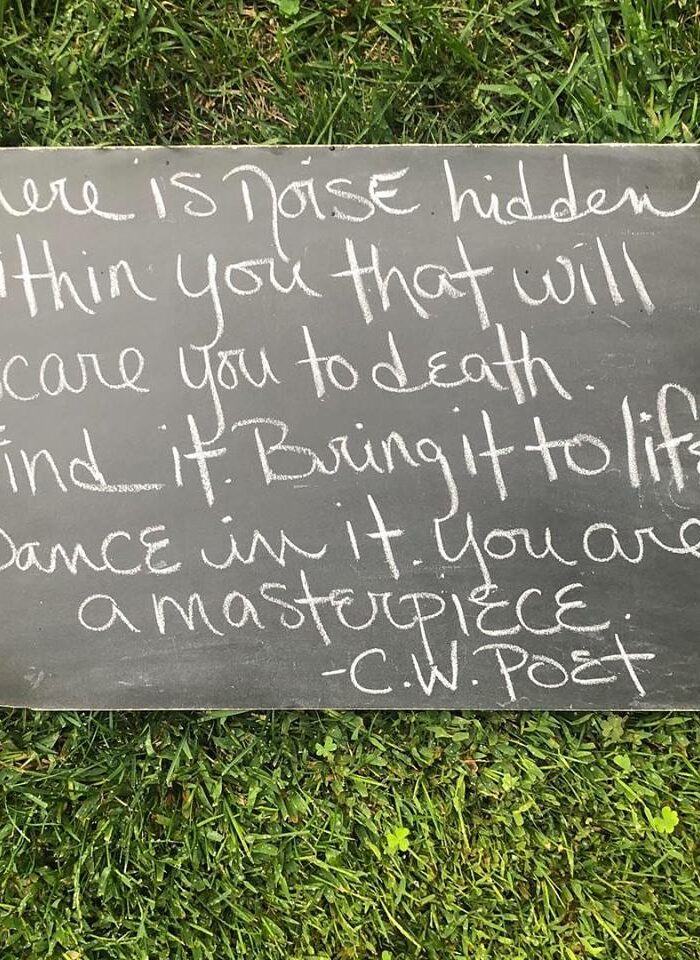 here is noise hidden
ithin you that will
scare you to death.
Find it. Bring it to life
Dance in it. You are
a masterpiece.
-C.W. Poet